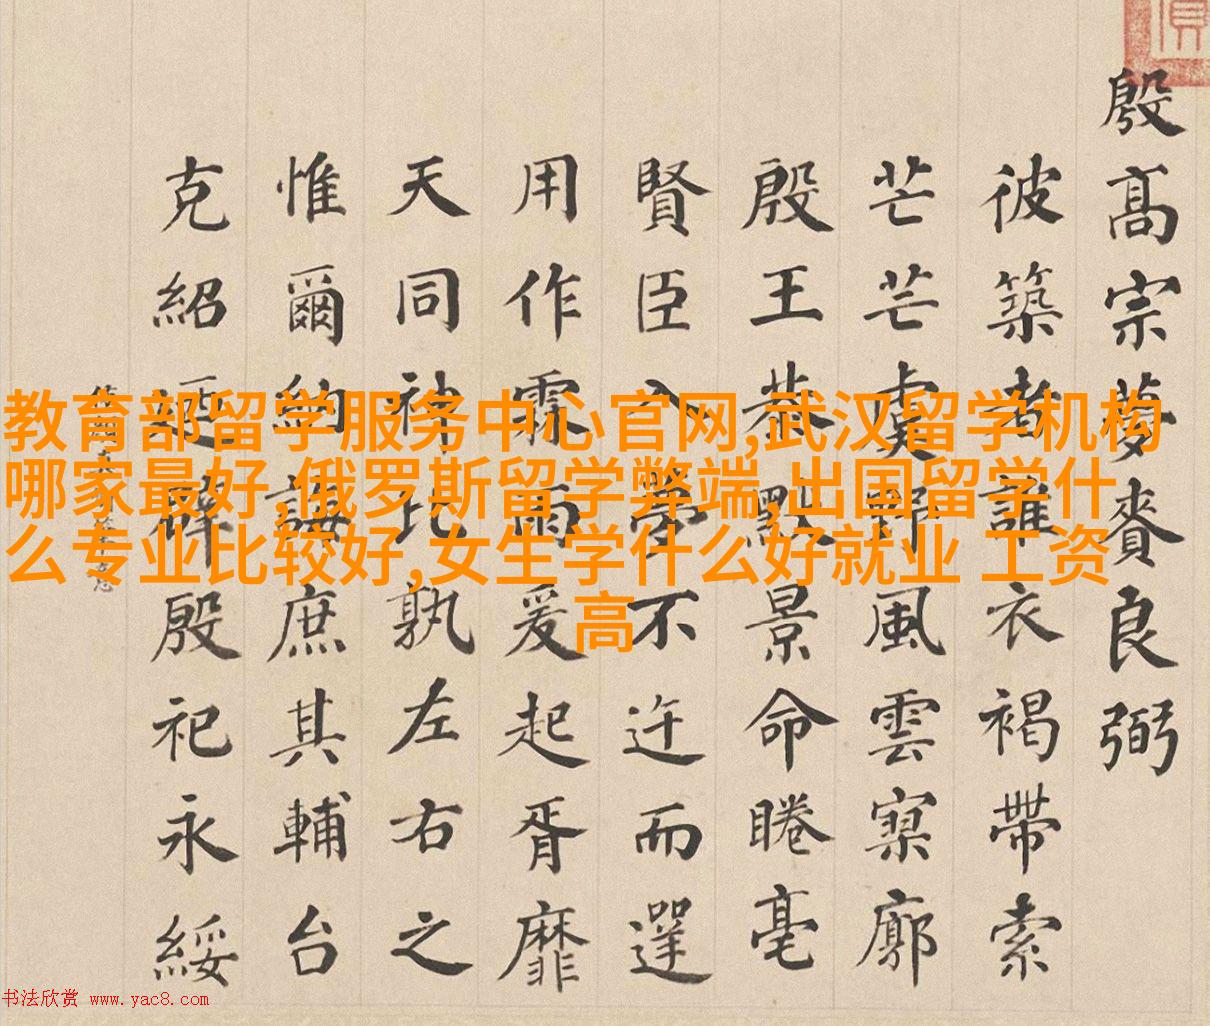 殷髙宗夢賚良弼
彼築者誰衣褐帶索
芒芒虞風雲寥廓
殷王恭默景命睠亳
賢臣入夢不迕而遻
用作霖雨爰起胥靡
天同神比孰左右之
惟爾納誨庶其輔台
克紹迺辟殷祀永綏
教育部留学服务中心官网,武汉留学机构
哪家最好,俄罗斯留学弊端,出国留学什
么专业比较好,女生学什么好就业 工资
高
书法欣赏 www.yac8.com